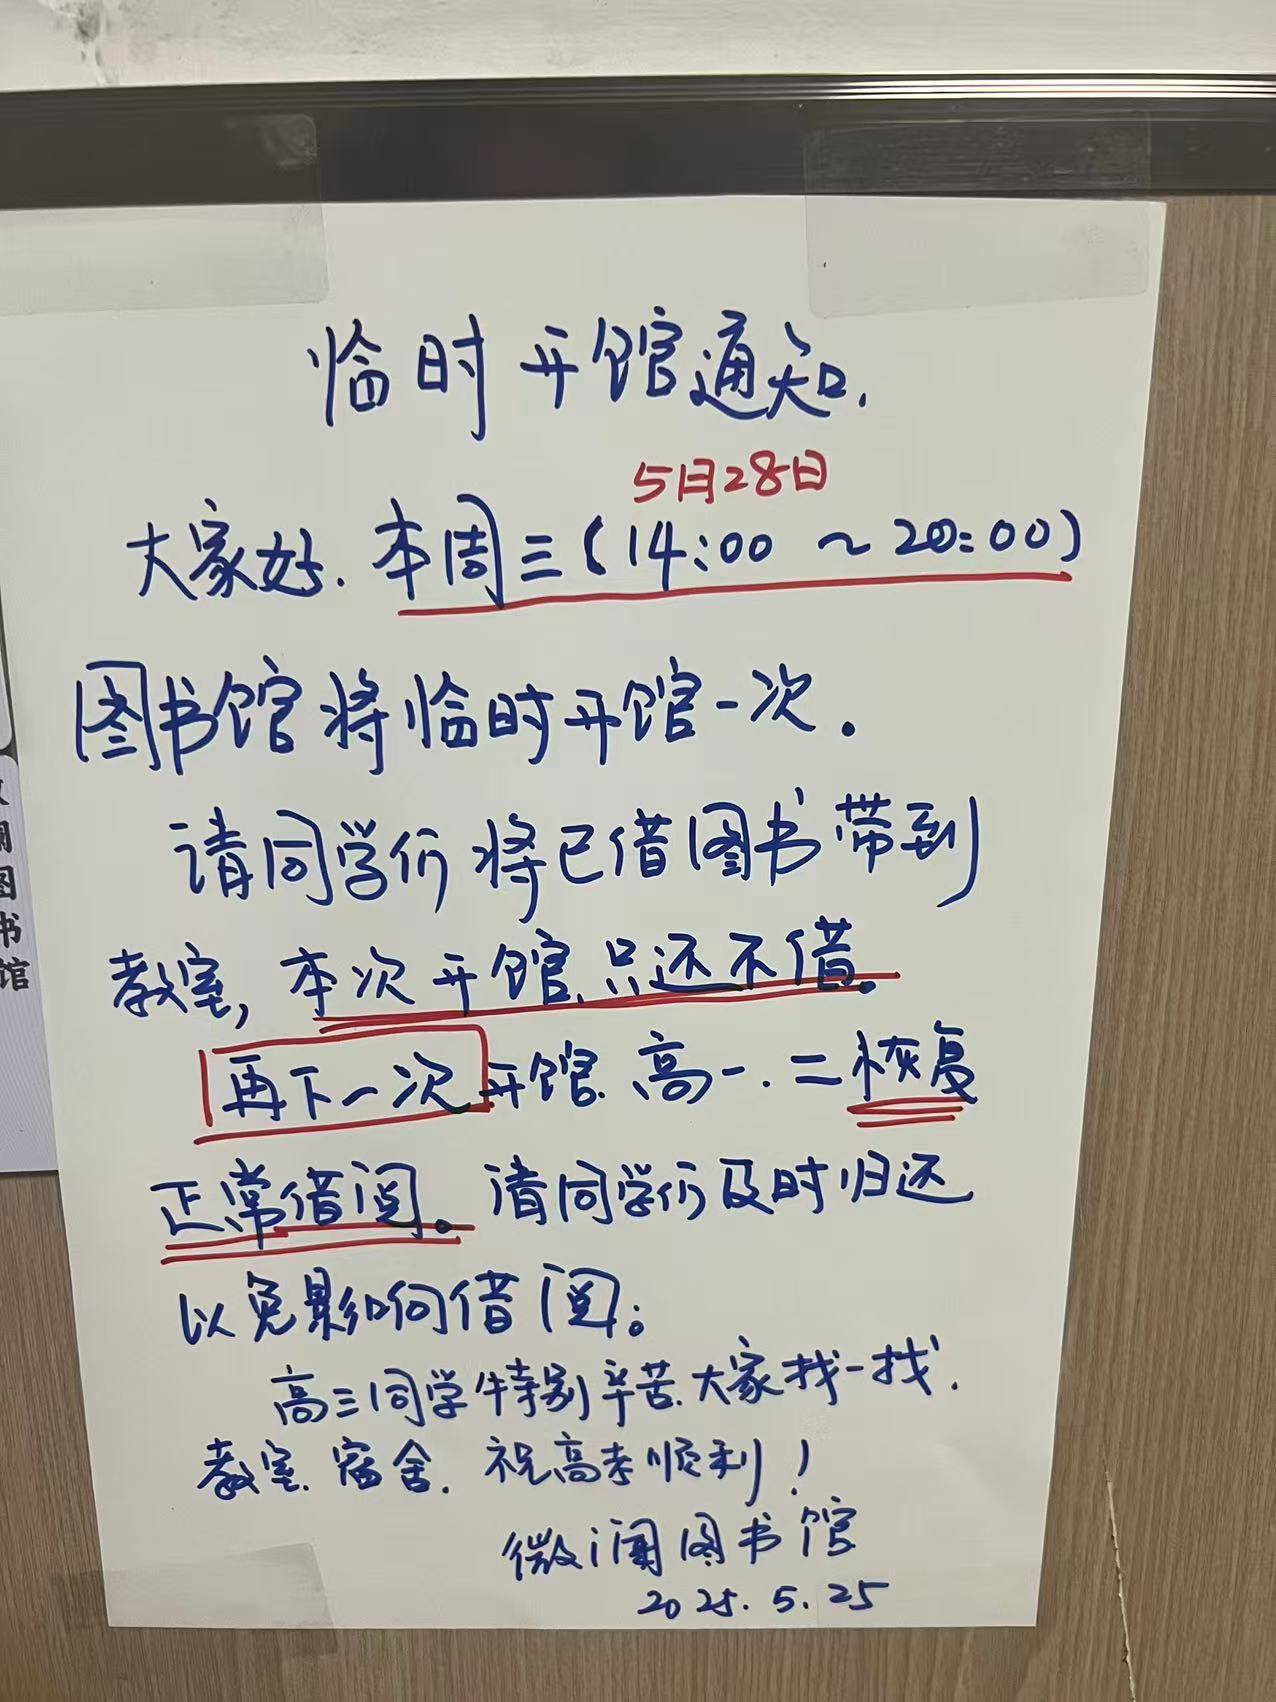 临时开馆通知.
5月28日
大家好.本周三(14:00 ~ 20:00)
图书馆将临时开馆一次.
请同学们将已借图书带到
教室,本次开馆只还不借。
再下一次开馆.高一.二恢复
正常借阅。请同学们及时归还
以免影响借阅。
高三同学特别辛苦.大家找一找.
教室.宿舍.祝高考顺利!
微澜图书馆
2025.5.25
图
书
馆